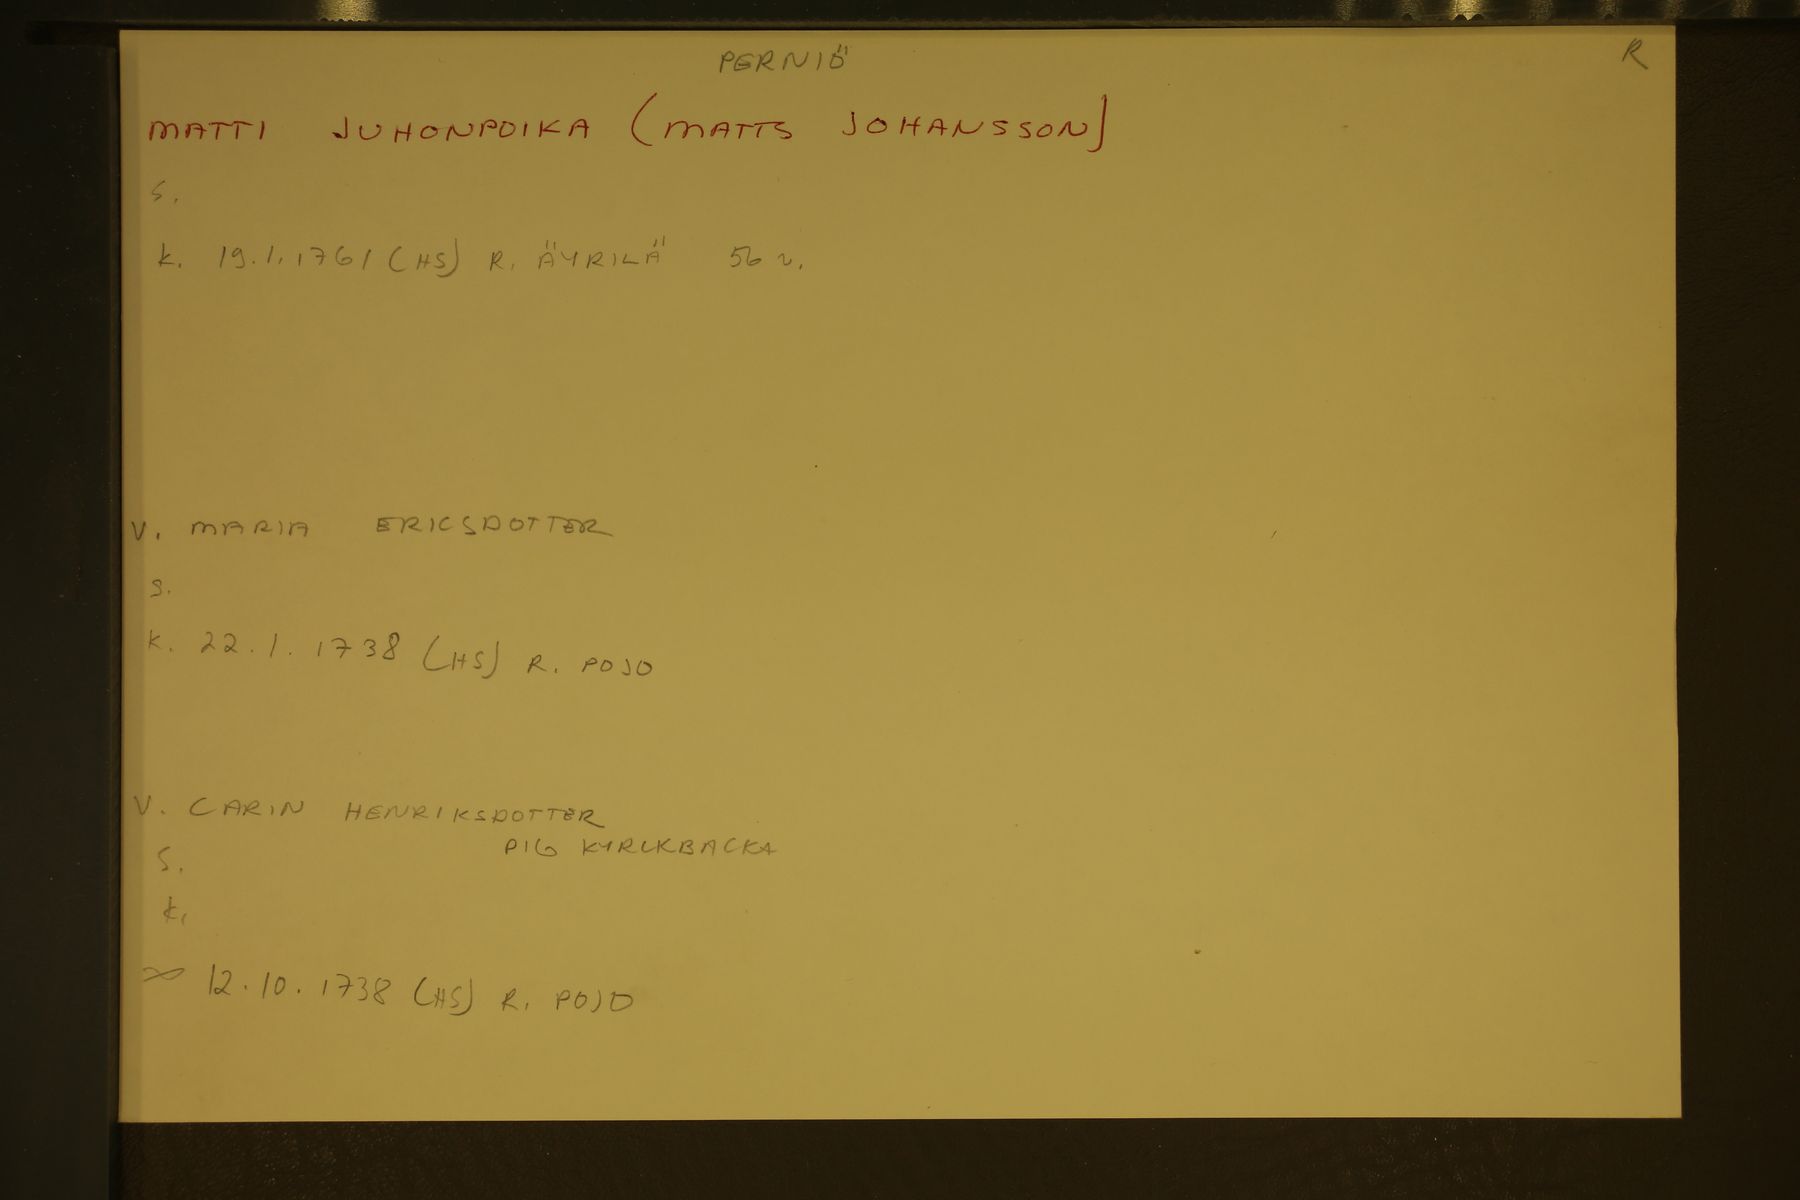 PERNIÖ R
MATTI JUHONPOIKA (MATTS JOHANSSON)
S.
K. 19.1.1761 (HS) R. ÄYRILÄ 56 v.
V. MARIA ERICSDOTTER
S.
K. 22.1.1738 (HS) R. POJO
V. CARIN HENRIKSDOTTER
PIG KYRCKBACKA
S.
K.
∞ 12.10.1738 (HS) R. POJO